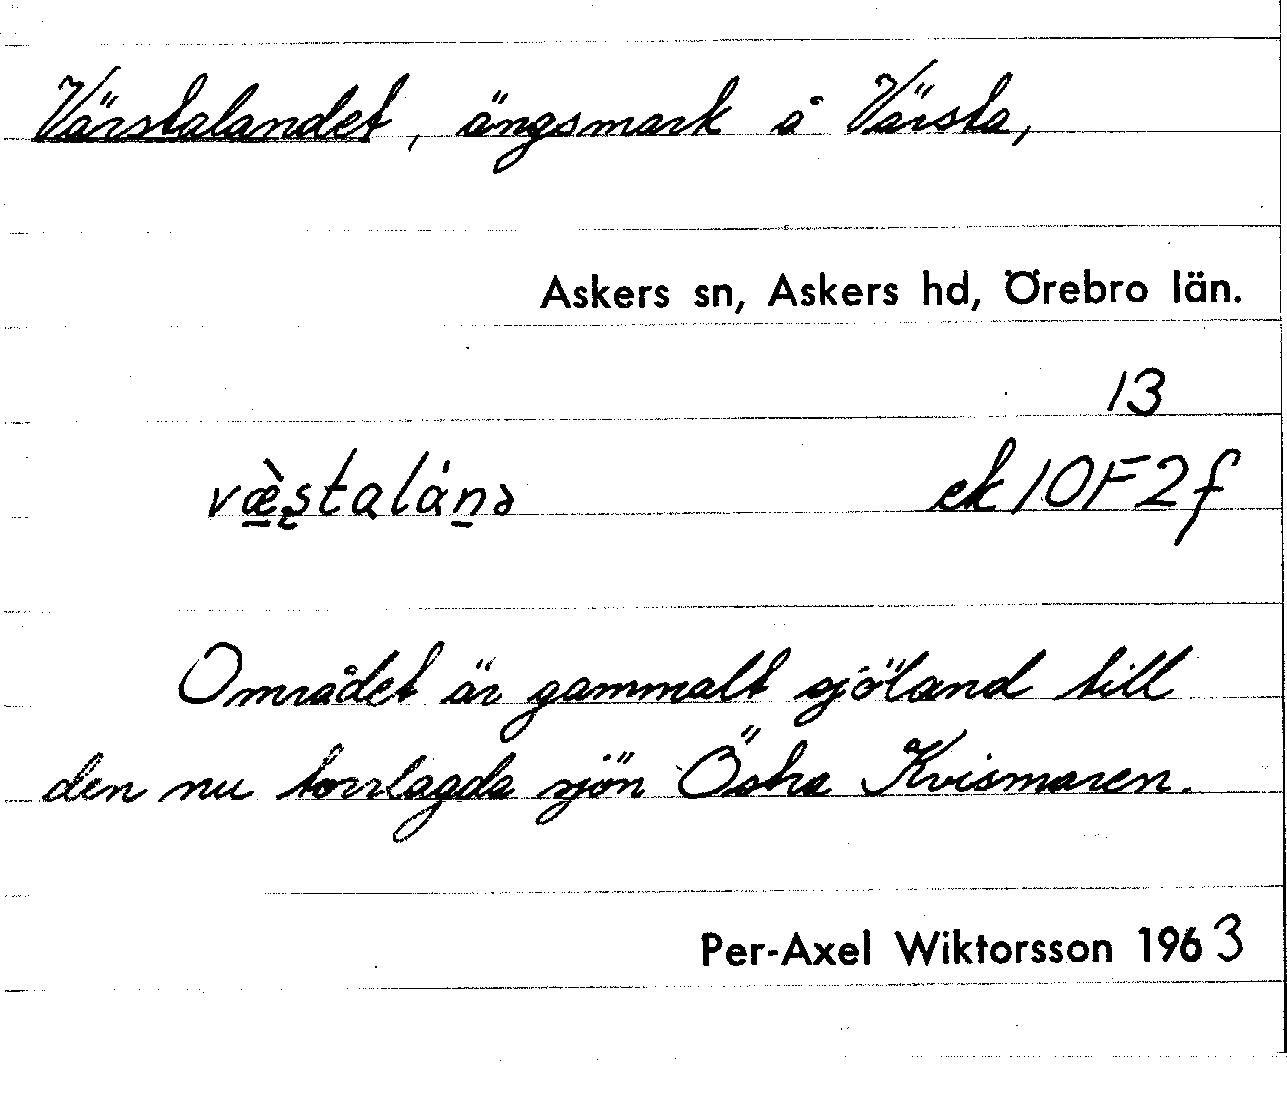 Värstalandet, ängsmark å Värsta,
Askers sn, Askers hd, Örebro län.
13
væ̀stalánə ek 10F2f
Området är gammalt sjöland till
den nu torrlagda sjön Östra Kvismaren.
Per-Axel Wiktorsson 1963